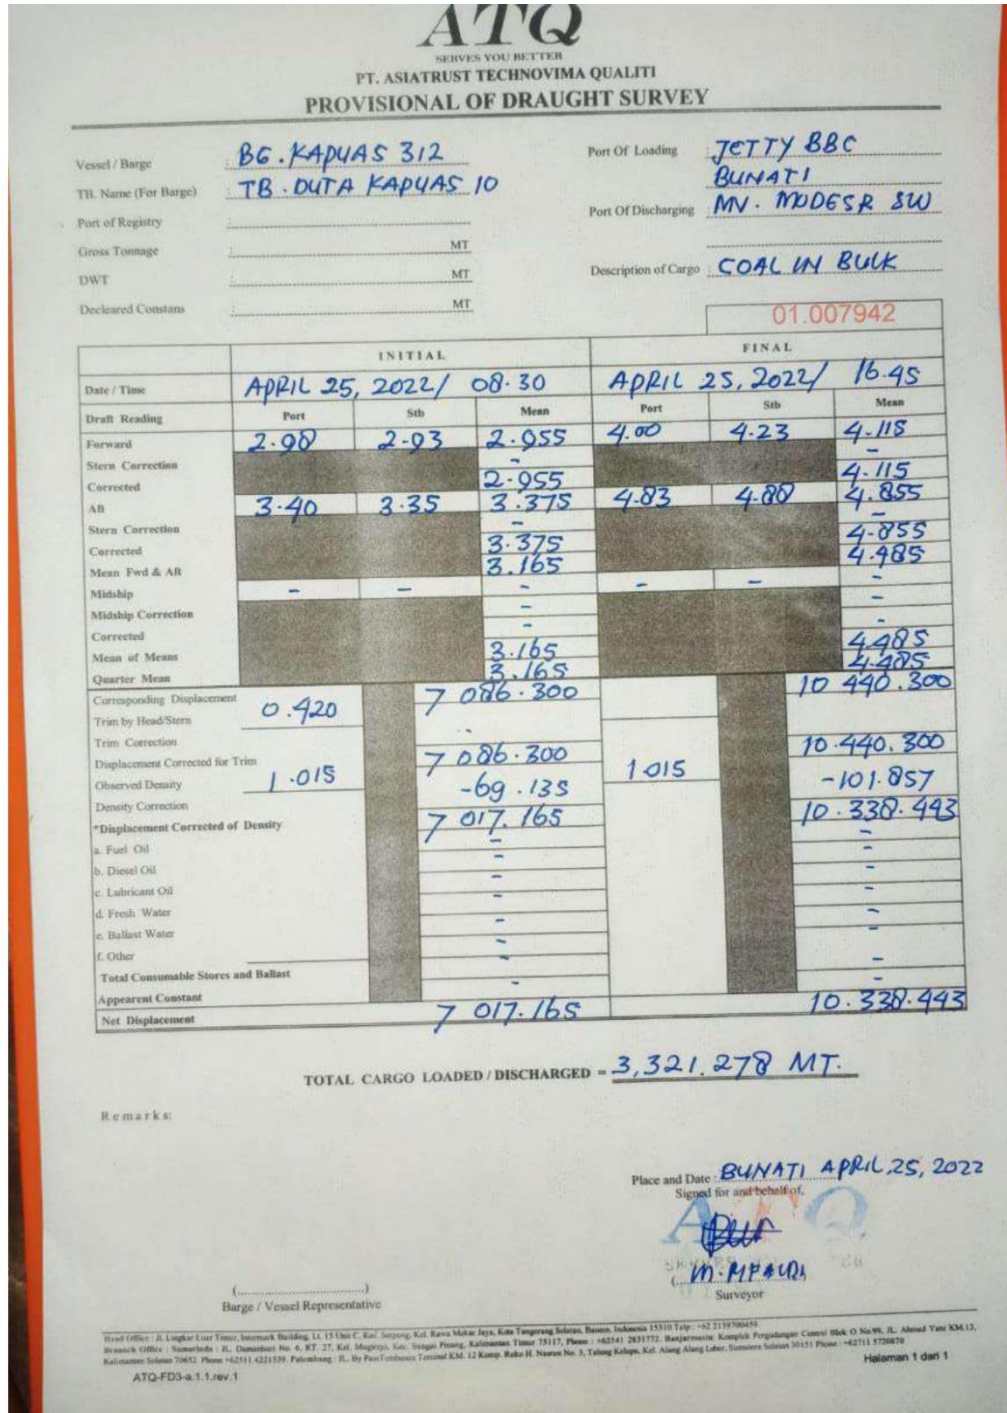 ATQ
SERVES YOU BETTER
PT. ASIATRUST TECHNOVIMA QUALITI
PROVISIONAL OF DRAUGHT SURVEY
Vessel / Barge : BG. KAPUAS 312
TB. Name (For Barge) : TB. DUTA KAPUAS 10
Port of Registry :
Gross Tonnage : MT
DWT : MT
Decleared Constans : MT
Port Of Loading : JETTY BBC
BUNATI
Port Of Discharging : MV. MODESR SW
Description of Cargo : COAL IN BULK
01.007942
INITIAL FINAL
Date / Time APRIL 25, 2022/ 08.30 APRIL 25, 2022/ 16.45
Draft Reading Port Stb Mean Port Stb Mean
Forward 2.98 2.93 2.955 4.00 4.23 4.115
Stern Correction - -
Corrected 2.955 4.115
Aft 3.40 3.35 3.375 4.83 4.88 4.855
Stern Correction - -
Corrected 3.375 4.855
Mean Fwd & Aft 3.165 4.485
Midship - - - - - -
Midship Correction - -
Corrected - -
Mean of Means 3.165 4.485
Quarter Mean 3.165 4.485
Corresponding Displacement 7 086.300 10 440.300
Trim by Head/Stern 0.420
Trim Correction -
Displacement Corrected for Trim 7 086.300 10.440.300
Observed Density 1.015 1.015
Density Correction -69.135 -101.857
*Displacement Corrected of Density 7 017.165 10.338.443
a. Fuel Oil - -
b. Diesel Oil - -
c. Lubricant Oil - -
d. Fresh Water - -
e. Ballast Water - -
f. Other - -
Total Consumable Stores and Ballast - -
Appearent Constant - -
Net Displacement 7 017.165 10.338.443
TOTAL CARGO LOADED / DISCHARGED = 3,321.278 MT.
Remarks:
Place and Date : BUNATI APRIL, 25, 2022
Signed for and behalf of,
ATQ
(....................) (
Barge / Vessel Representative Surveyor
Head Office : Jl. Lingkar Luar Timur, Intermark Building, Lt. 15 Unit C, Kec. Serpong, Kel. Rawa Mekar Jaya, Kota Tangerang Selatan, Banten, Indonesia 15310 Telp : +62 2139700459.
Branch Office : Samarinda : JL. Damanhuri No. 6, RT. 27, Kel. Mugirejo, Kec. Sungai Pinang, Kalimantan Timur 75117, Phone : +62541 2831772. Banjarmasin: Komplek Pergudangan Central Blok O No.99, JL. Ahmad Yani KM.13,
Kalimantan Selatan 70652. Phone +62511 4221539. Palembang : JL. By Pass Terminal KM. 12 Komp. Ruko H. Nasrun No. 3, Talang Kelapa, Kel. Alang Alang Lebar, Sumatera Selatan 30151 Phone : +62711 5720870
Halaman 1 dari 1
ATQ-FD3-a.1.1.rev.1